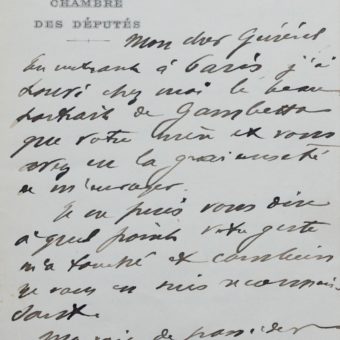 CHAMBRE
DES DÉPUTÉS
Mon cher
En rentrant à Paris j'ai
trouvé chez moi le beau
portrait de Gambetta
que votre mère et vous
avez eu la gracieuseté
de m'envoyer.
Je ne puis vous dire
à quel point votre geste
m'a touché et combien
je vous en suis reconnais-
sant.
Ma joie de posséder